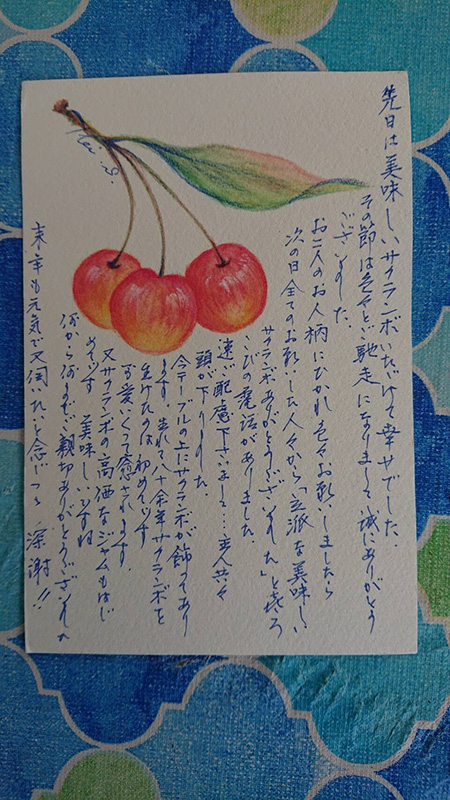 先日は美味しいサクランボいただけて幸せでした。
その節は色々とご馳走になりまして誠にありがとう
ございました。
お二人のお人柄にひかれ色々お願いしましたら
次の日全てのお願いした人々から「立派な美味しい
サクランボありがとうございました」と喜ろ
こびの電話がありました。
速い配慮下さいまして…主人共々
頭が下りました。
今テーブルの上にサクランボが飾ってあり
ます。生れて八十余年サクランボを
生けたのは初めてです
可愛いくって癒されます。
又サクランボの高価なジャムもはじ
めてです 美味しいですね
何から何までご親切ありがとうございました
来年も元気で又伺いたいと念じつつ 深謝!!